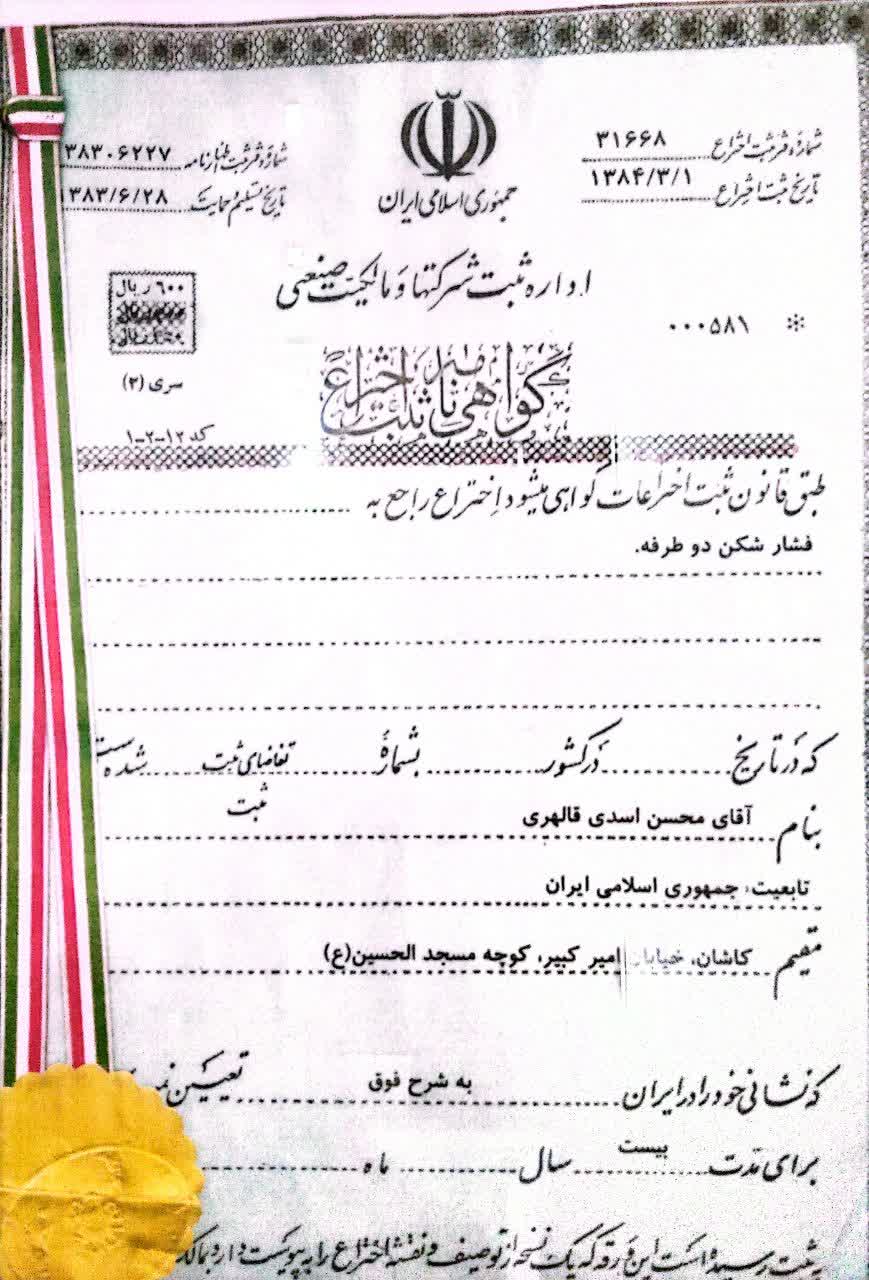 شماره و ثبت اختراع ۳۱۶۶۸
تاریخ ثبت اختراع ۱۳۸۴/۳/۱
جمهوری اسلامی ایران
شماره ثبت اظهارنامه ۳۸۳۰۶۲۲۷
تاریخ تسلیم و حمایت ۱۳۸۳/۶/۲۸
اداره ثبت شرکتها و مالکیت صنعتی
* ۰۰۰۵۸۱
۶۰۰ ریال
سری (۳)
کد ۱۲-۲-۱
گواهی نامه ثبت اختراع
طبق قانون ثبت اختراعات گواهی میشود اختراع راجع به
فشار شکن دو طرفه.
که در تاریخ در کشور بشمارهٔ تقاضای ثبت شده است
ثبت
بنام آقای محسن اسدی قالهری
تابعیت: جمهوری اسلامی ایران
مقیم کاشان، خیابان امیر کبیر، کوچه مسجد الحسین(ع)
که نشانی خود را در ایران به شرح فوق تعیین
برای مدت بیست سال ماه
بثبت رسیده است این ورقه که یک نسخه از توصیف و نقشه اختراع را به پیوست دارد بمالک